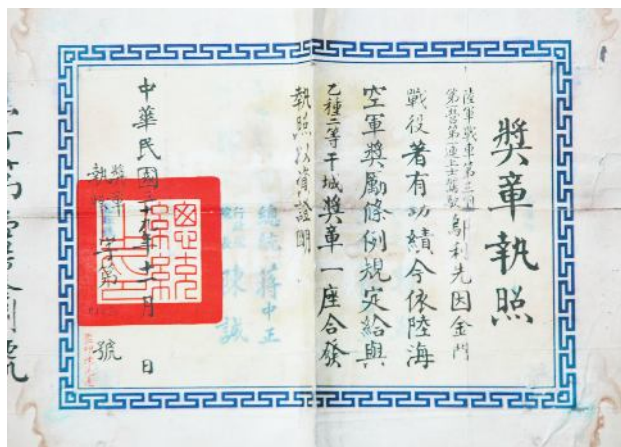 獎章執照
陸軍戰車第三團
第一營第一連上士駕駛
鄔利先因金門
戰役著有功績今依陸海
空軍獎勵條例規定給與
乙種二等干城獎章一座合發
執照以資證明
總統 蔣中正
行政院
院長 陳誠
中華民國 九年十 月 日
獎章
執照 字第 號